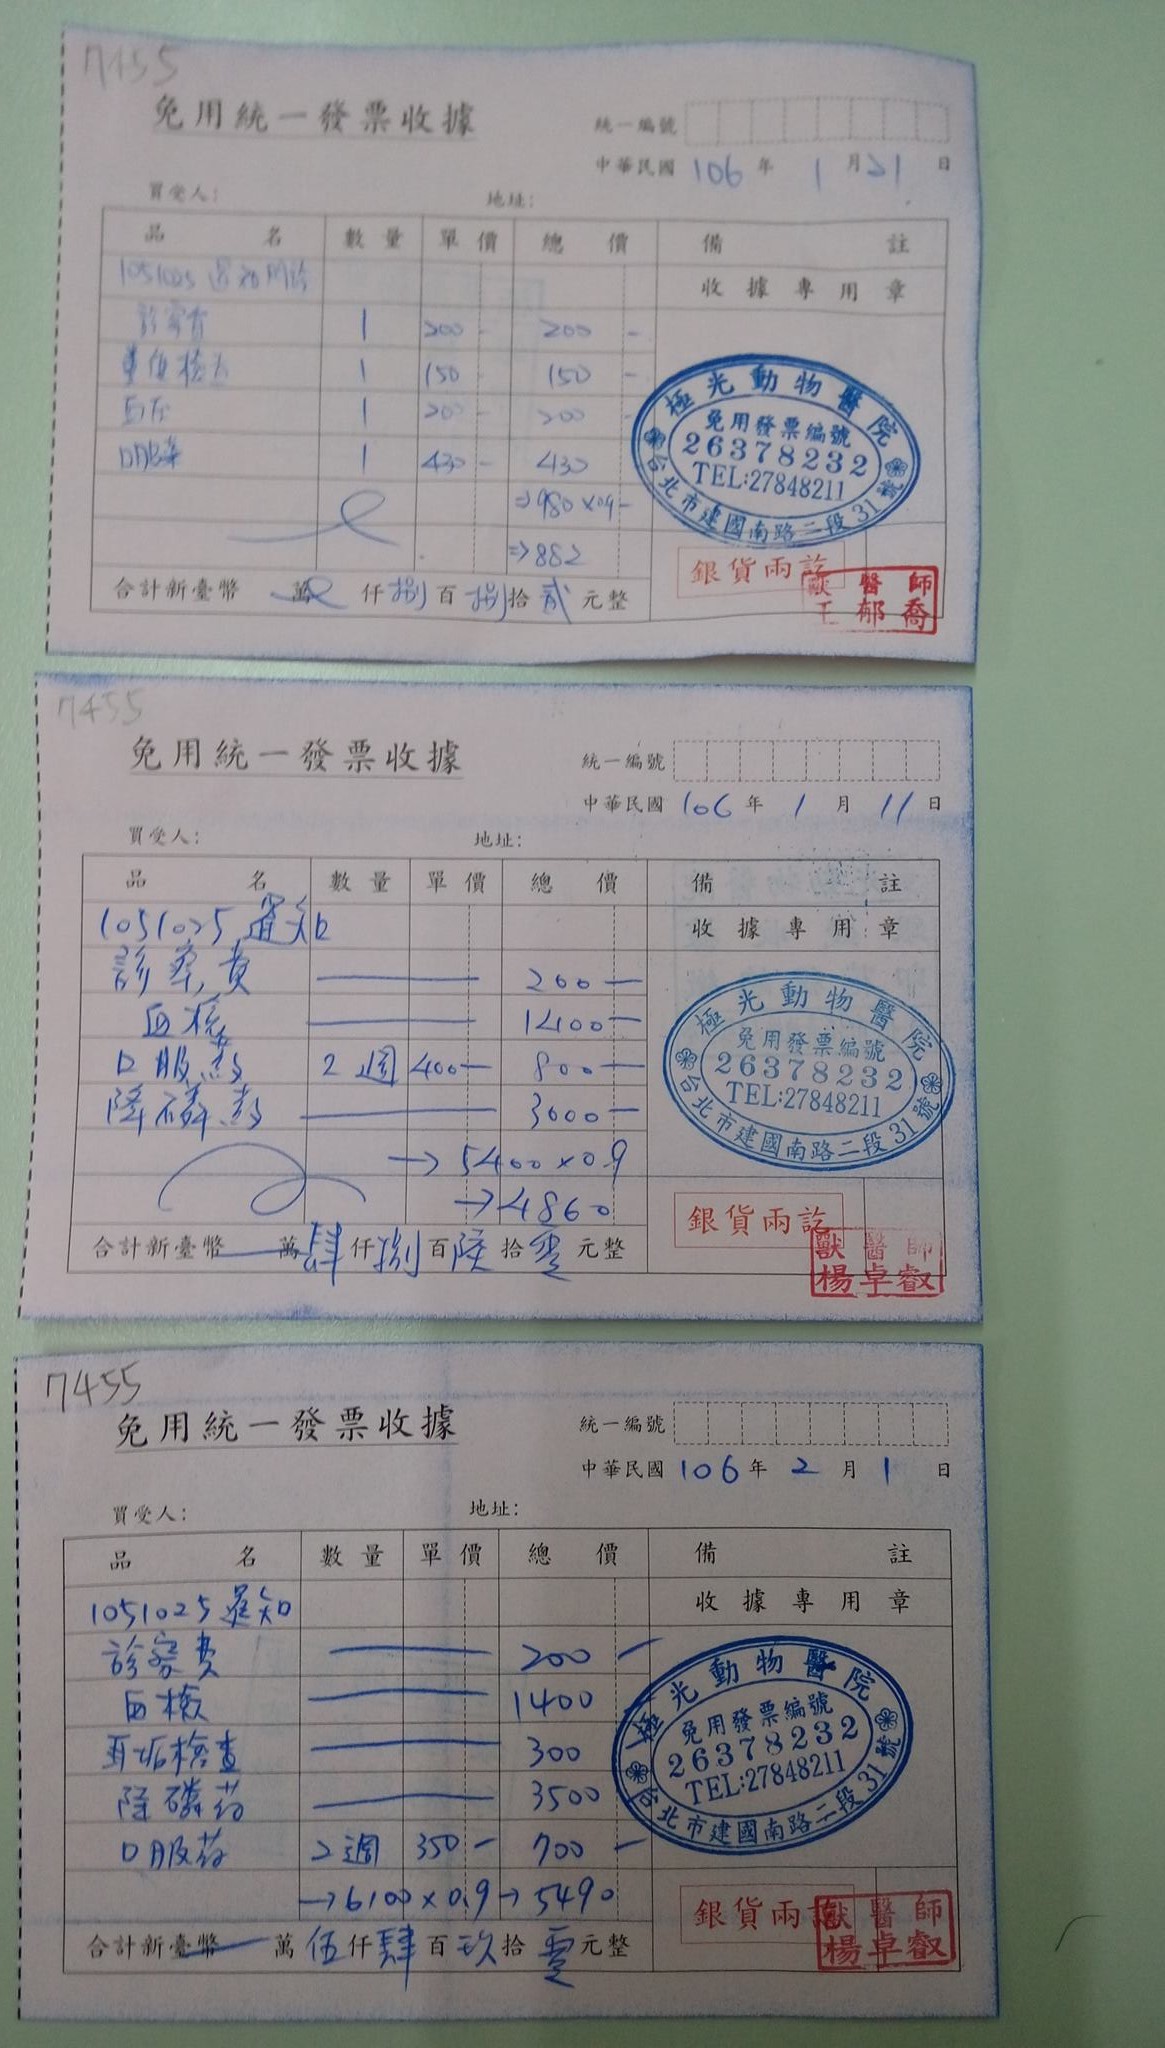 7455
免用統一發票收據
統一編號
中華民國 106 年 1 月 21 日
買受人: 地址:
品名 數量 單價 總價 備註
1051025
收據專用章
診察費 1 200- 200-
1 150- 150-
血压 1 200- 200-
口服藥 1 430- 430
⇒980×0.9-
⇒882
合計新臺幣 萬 仟捌百捌拾貳元整
極光動物醫院
免用發票編號
26378232
TEL:27848211
台北市建國南路二段31號
銀貨兩訖
獸醫師
王郁喬
7455
免用統一發票收據
統一編號
中華民國 106 年 1 月 11 日
買受人: 地址:
品名 數量 單價 總價 備註
1051025 暹知
收據專用章
診察費 200-
血檢 1400-
口服葯 2週 400- 800-
降磷葯 3000-
→5400×0.9
→4860
合計新臺幣 萬肆仟捌百陸拾零元整
極光動物醫院
免用發票編號
26378232
TEL:27848211
台北市建國南路二段31號
銀貨兩訖
獸醫師
楊卓叡
7455
免用統一發票收據
統一編號
中華民國 106 年 2 月 1 日
買受人: 地址:
品名 數量 單價 總價 備註
1051025 暹知
收據專用章
診察費 200-
血檢 1400
耳垢檢查 300
降磷葯 3500
口服葯 2週 350- 700-
→6100×0.9→5490
合計新臺幣 萬伍仟肆百玖拾零元整
極光動物醫院
免用發票編號
26378232
TEL:27848211
台北市建國南路二段31號
銀貨兩訖
獸醫師
楊卓叡